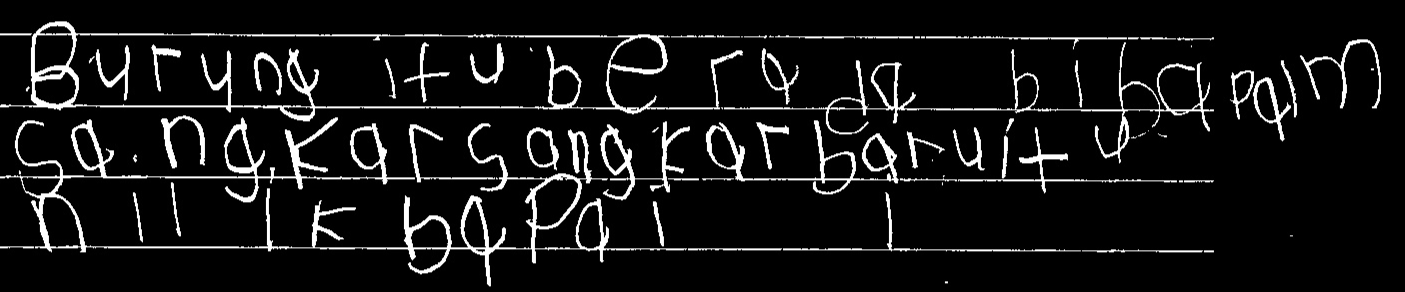 Burung itu berada bibapalm
sangkarsangkarbaruitu
nilikbapai l